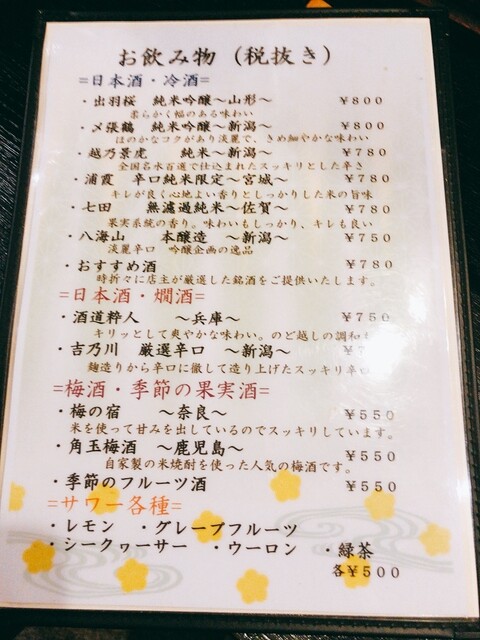 お飲み物（税抜き）
=日本酒・冷酒=
・出羽桜 純米吟醸～山形～ ￥800
柔らかく幅のある味わい
・〆張鶴 純米吟醸～新潟～ ￥800
ほのかなコクがあり淡麗で、きめ細やかな味わい
・越乃景虎 純米～新潟～ ￥780
全国名水百選で仕込まれたスッキリとした辛さ
・浦霞 辛口純米限定～宮城～ ￥780
キレが良く心地よい香りとしっかりした米の旨味
・七田 無濾過純米～佐賀～ ￥780
果実系統の香り。味わいもしっかり、キレも良い
・八海山 本醸造 ～新潟～ ￥750
淡麗辛口 吟醸企画の逸品
・おすすめ酒 ￥780
時折々に店主が厳選した銘酒をご提供いたします。
=日本酒・燗酒=
・酒道粋人 ～兵庫～ ￥750
キリッとして爽やかな味わい。のど越しの調和も
・吉乃川 厳選辛口 ～新潟～ ￥7
麹造りから辛口に徹して造り上げたスッキリ辛口
=梅酒・季節の果実酒=
・梅の宿 ～奈良～ ￥550
米を使って甘みを出しているのでスッキリしています。
・角玉梅酒 ～鹿児島～ ￥550
自家製の米焼酎を使った人気の梅酒です。
・季節のフルーツ酒 ￥550
=サワー各種=
・レモン ・グレープフルーツ
・シークヮーサー ・ウーロン ・緑茶
各￥500